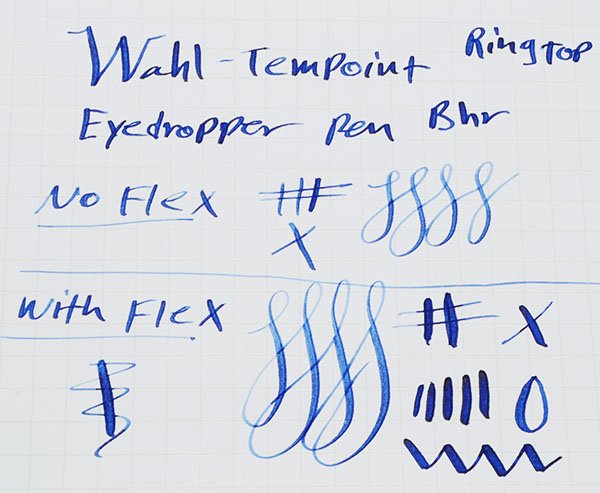 Wahl-Tempoint Ringtop
Eyedropper Pen Bhr
No Flex
X
With Flex
X